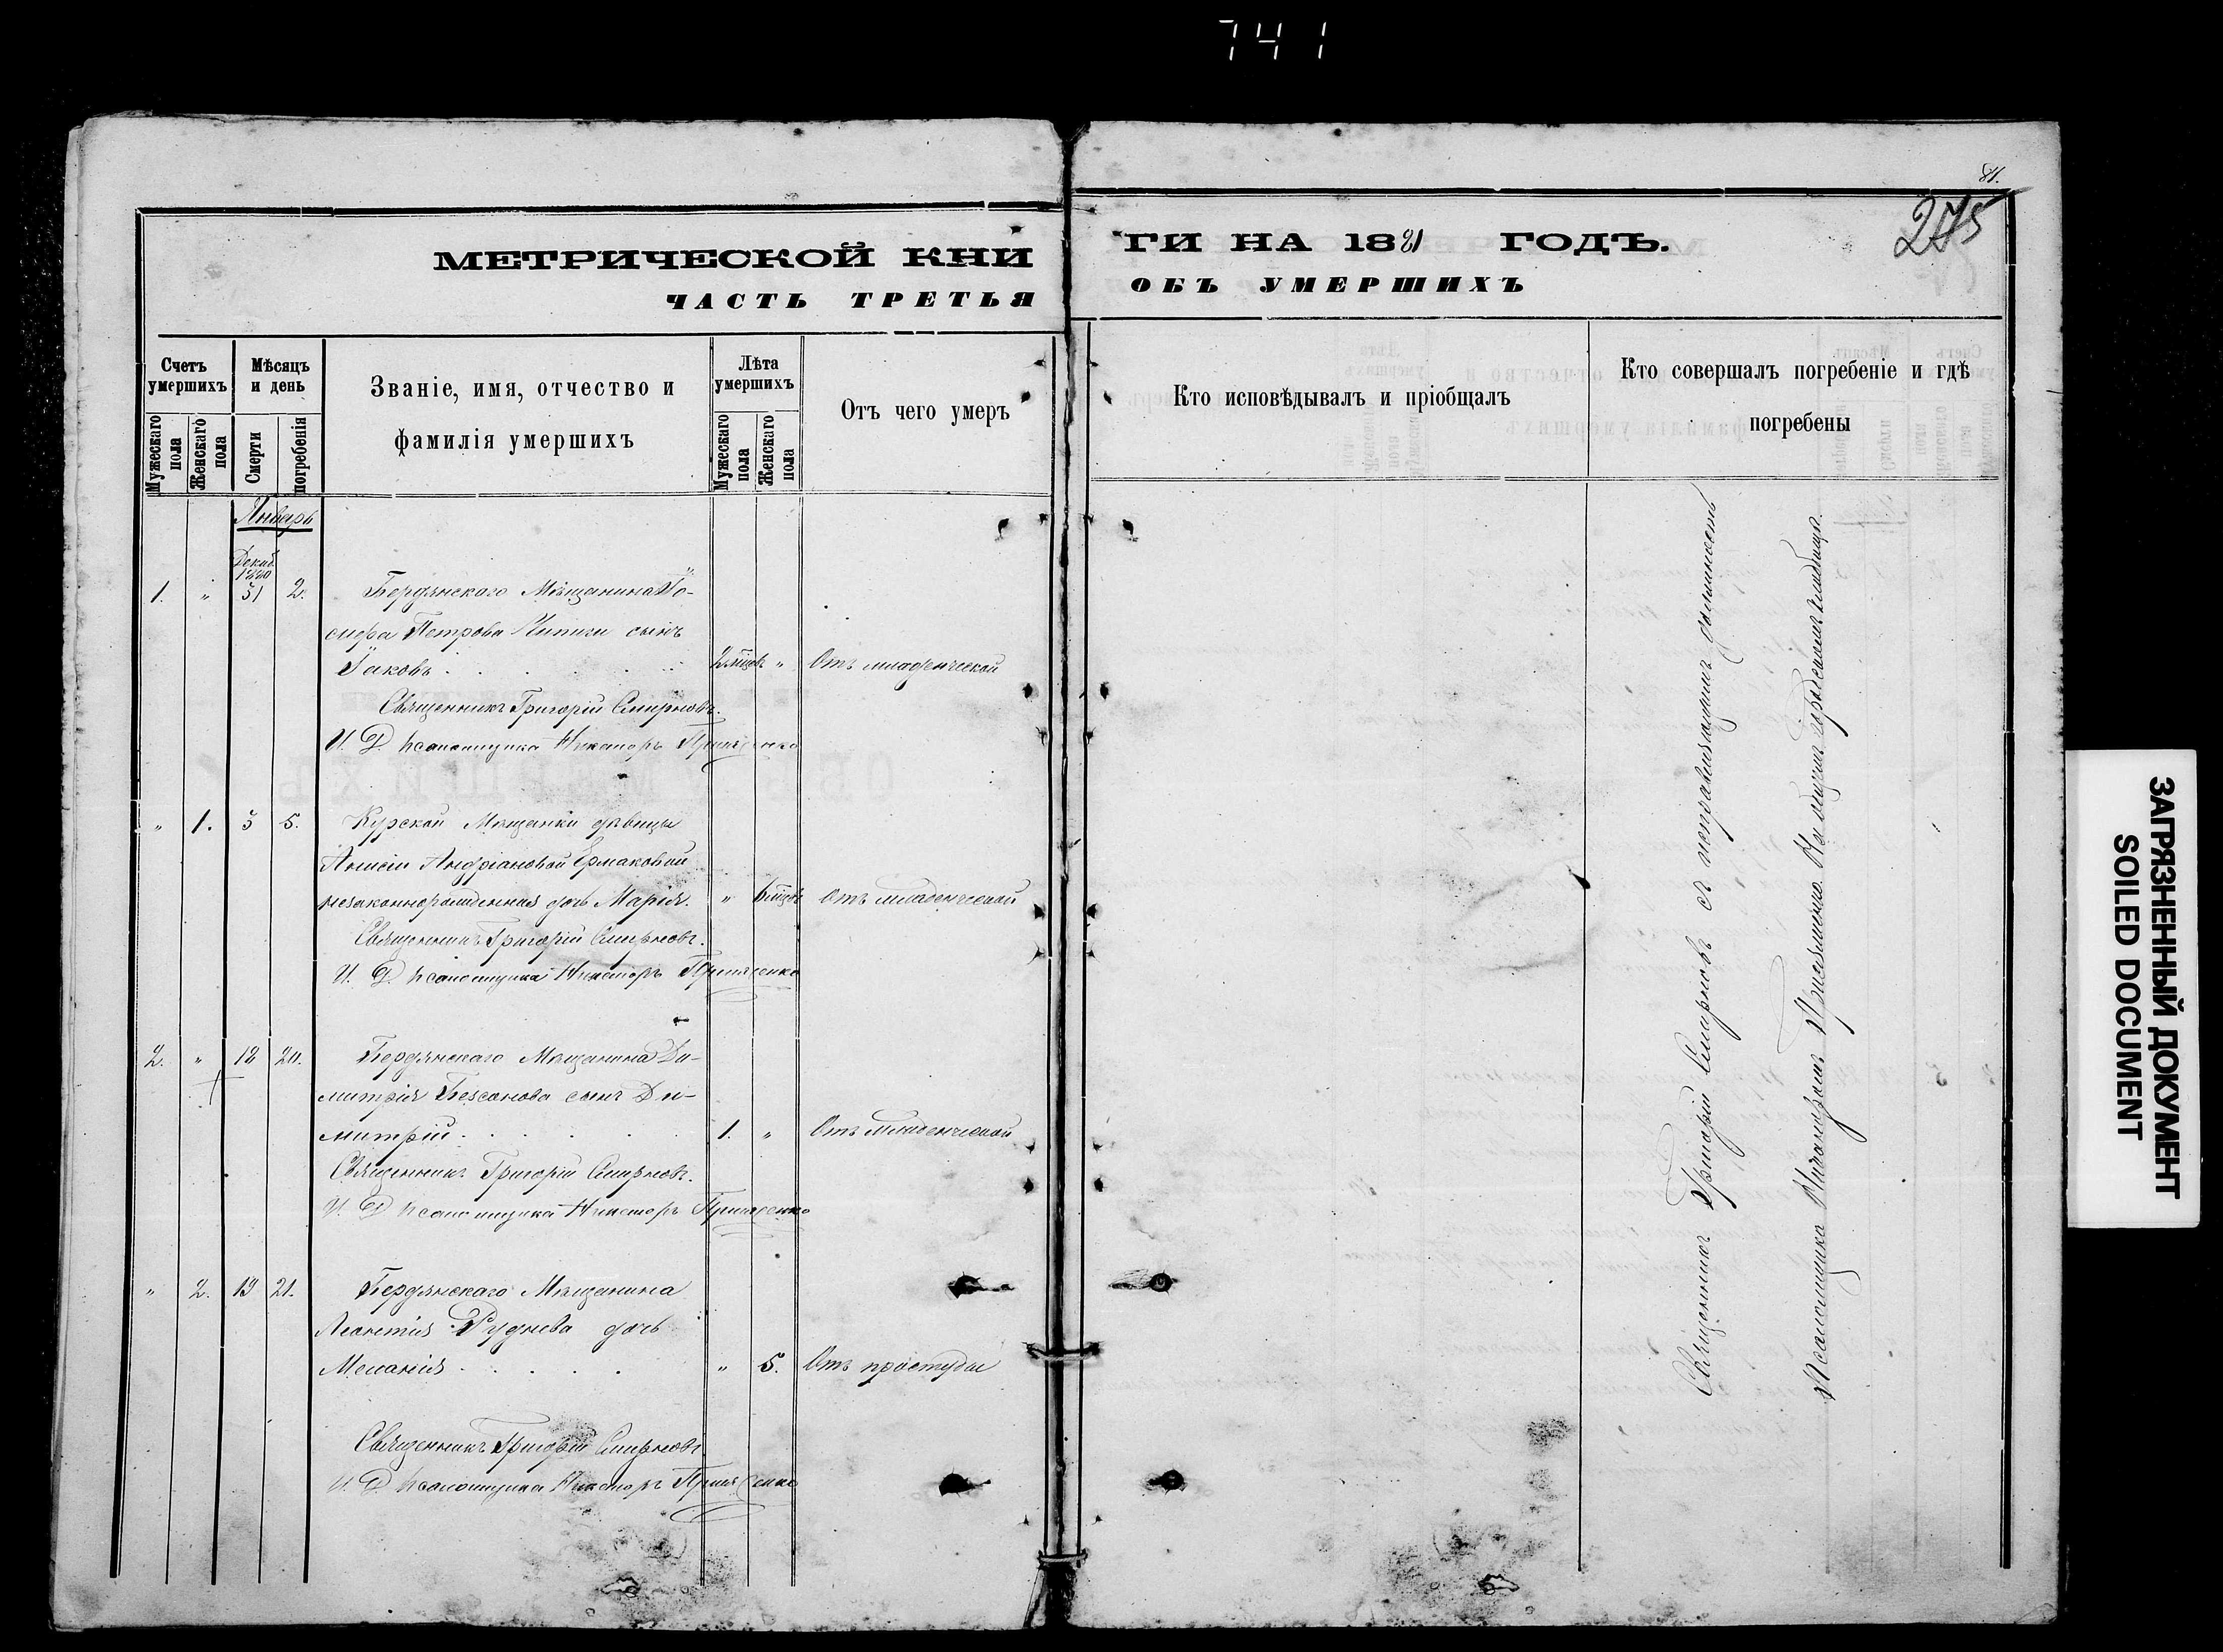 741
81.
275
МЕТРИЧЕСКОЙ КНИ
ГИ НА 1881 ГОДЪ.
ЧАСТЬ ТРЕТЬЯ
ОБЪ УМЕРШИХЪ
Счетъ умершихъ
Мужескаго пола
Женскаго пола
Мѣсяцъ и день
Смерти
погребенія
Званіе, имя, отчество и
фамилія умершихъ
Лѣта умершихъ
Мужескаго пола
Женскаго пола
Отъ чего умеръ
Кто исповѣдывалъ и пріобщалъ
Кто совершалъ погребеніе и гдѣ
погребены
Январь
Декаб.
1880
1. " 31 2. Бердянскаго Мѣщанина Іо-
сифа Петрова сынъ
Іаковъ . . . . 2 мѣцев " Отъ младенческой
Священникъ Григорій Смирновъ.
И. Д. псаломщика
" 1. 3 5. Курской Мѣщанки дѣвицы
Анисіи Андріановой Ермаковой
незаконнорожденная дочь Марія. " 6 мѣцев Отъ младенческой
Священникъ Григорій Смирновъ.
И. Д. псаломщика
2. " 18 20. Бердянскаго Мѣщанина Ди-
митрія Безсонова сынъ Ди-
митрій . . . . . 1. " Отъ младенческой
Священникъ Григорій Смирновъ.
И. Д. псаломщика
" 2. 19 21. Бердянскаго Мѣщанина
Леонтія Руднева дочь
Меланія . . . . . " 5. Отъ простуды
Священникъ Григорій Смирновъ
И. Д. псаломщика
Священникъ Григорій Смирновъ съ исправляющимъ должность
Псаломщика На общемъ городскомъ кладбищѣ.
ЗАГРЯЗНЕННЫЙ ДОКУМЕНТ
SOILED DOCUMENT